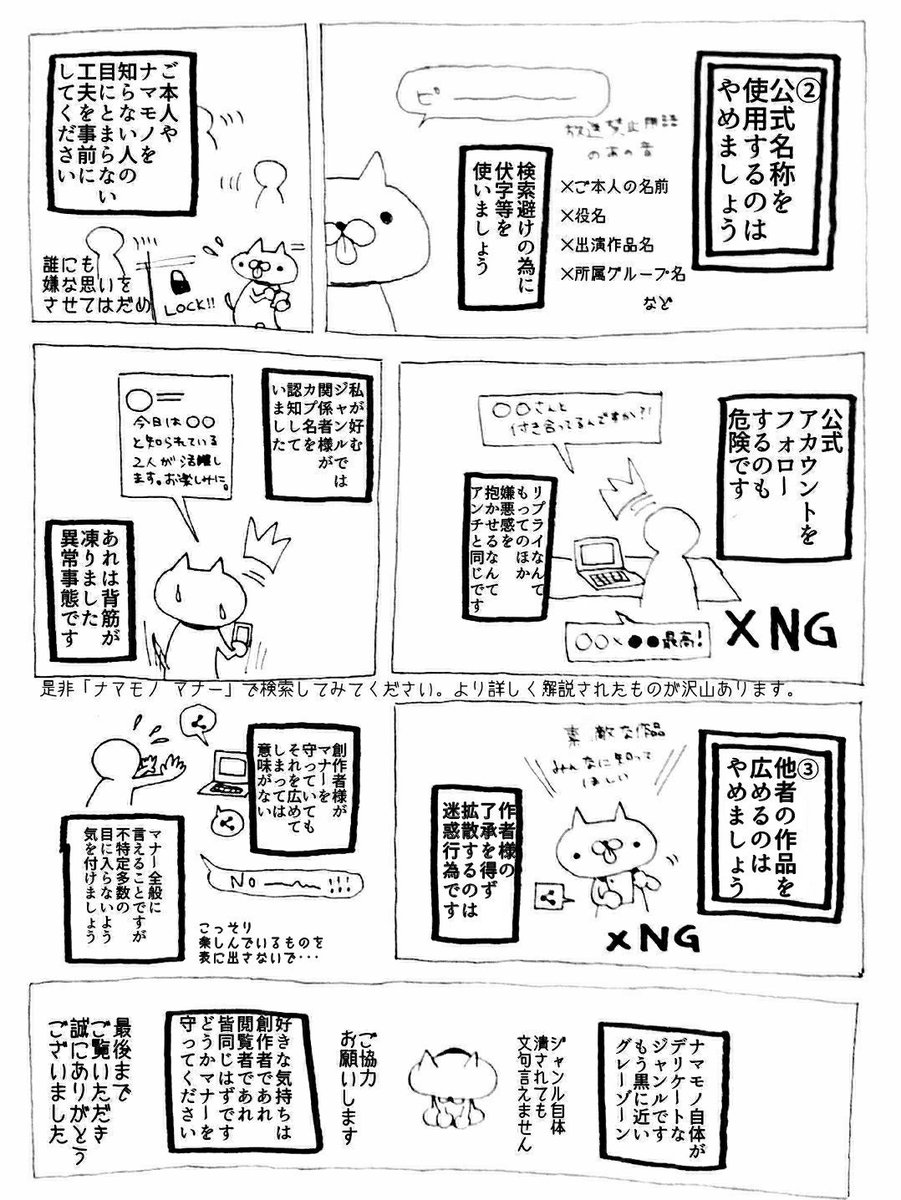 ②
公式名称を
使用するのは
やめましょう
ピ
放送禁止用語
のあの音
×ご本人の名前
×役名
×出演作品名
×所属グループ名
など
検索避けの為に
伏字等を
使いましょう
ご本人や
ナマモノを
知らない人の
目にとまらない
工夫を事前に
してください
誰にも
嫌な思いを
させてはだめ
LOCK!!
公式
アカウントを
フォロー
するのも
危険です
○○さんと
付き合ってるんですか?!
リプライなんて
もってのほか
嫌悪感を
抱かせるなんて
アンチと同じです
○○×●●最高!
×NG
私が好む
ジャンルでは
関係者様が
カプ名を
認知して
いました
今日は○○
と知られている
2人が活躍し
ます。お楽しみに。
あれは背筋が
凍りました
異常事態です
是非「ナマモノ マナー」で検索してみてください。より詳しく解説されたものが沢山あります。
③
他者の作品を
広めるのは
やめましょう
素敵な作品
みんなに知って
ほしい
作者様の
了承を得ず
拡散するのは
迷惑行為です
×NG
創作者様が
マナーを
守っていても
それを広めて
しまっては
意味がない
No
!!!
マナー全般に
言えることですが
不特定多数の
目に入らないよう
気を付けましょう
こっそり
楽しんでいるものを
表に出さないで・・・
ナマモノ自体が
デリケートな
ジャンルです
もう黒に近い
グレーゾーン
ジャンル自体
潰されても
文句言えません
ご協力
お願いします
好きな気持ちは
創作者であれ
閲覧者であれ
皆同じはずです
どうかマナーを
守ってください
最後まで
ご覧いただき
誠にありがとう
ございました